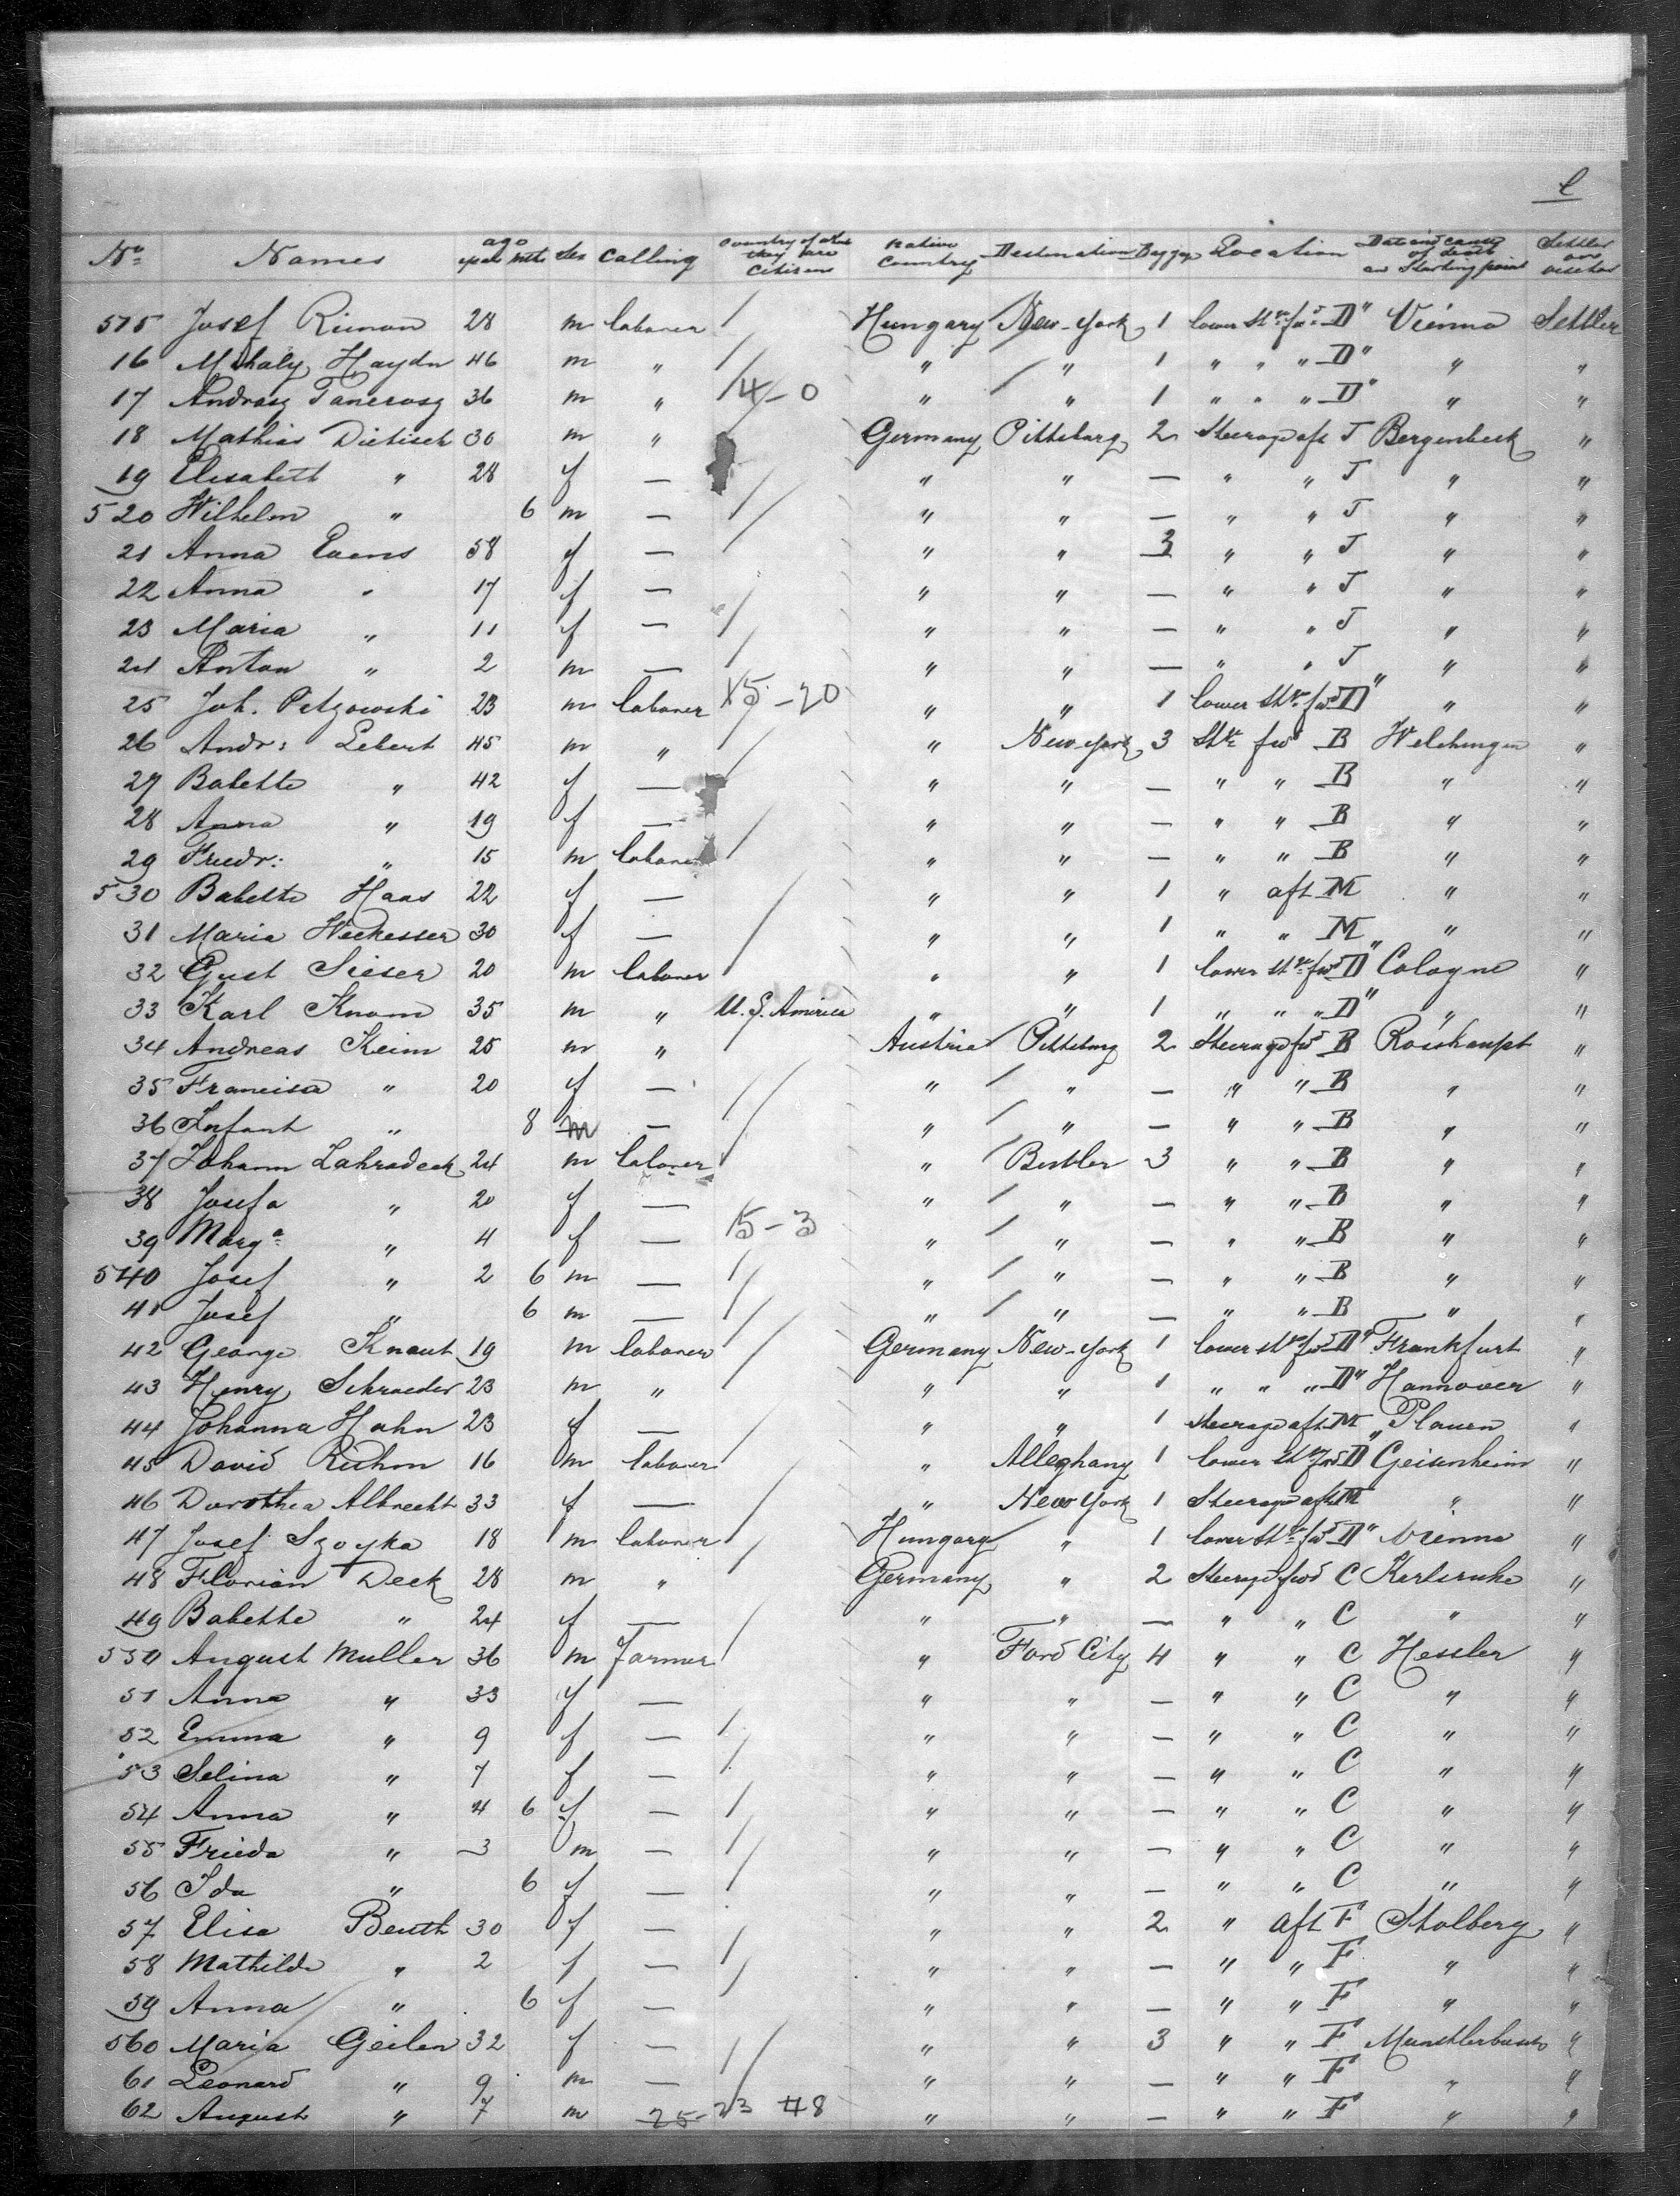 C
No Names age years mth Sex Calling Country of which they are Citizens Native Country Destination Baggage Location Date and cause of death or Starting point Settler or visitor
515 Josef Rimon 28 m laborer Hungary New-York 1 lower St. fwd D" Vienna Settler
16 Mihaly Haydn 46 m " " " 1 " " " D" " "
17 Andrasz 36 m " 4-0 " " 1 " " " D" " "
18 Mathias Dietisch 30 m " Germany Pittsburg 2 Steerage aft J Bergenbeck "
19 Elisabeth " 28 f — " " — " " J " "
520 Wilhelm " 6 m — " " — " " J " "
21 Anna Evens 58 f — " " 3 " " J " "
22 Anna " 17 f — " " — " " J " "
23 Maria " 11 f — " " — " " J " "
24 Anton " 2 m — " " — " " J " "
25 Joh. Petzowski 23 m laborer 15-20 " " 1 lower St. fwd D" " "
26 Andr: Lebert 45 m " " New-York 3 St. fwd B Welchingen "
27 Babette " 42 f — " " — " " B " "
28 Anna " 19 f — " " — " " B " "
29 Friedr: " 15 m laborer " " — " " B " "
530 Babette Haas 22 f — " " 1 " aft M " "
31 Maria Weckesser 30 f — " " 1 " " M " "
32 Gust Sieser 20 m laborer " " 1 lower St. fwd D" Cologne "
33 Karl Knom 35 m " U.S. America " " 1 " " " D" " "
34 Andreas Keim 25 m " Austria Pittsburg 2 Steerage fwd B Rosshaupt "
35 Francisca " 20 f — " " — " " B " "
36 Infant " 8 m — " " — " " B " "
37 Johann Zahradeck 24 m laborer " Butler 3 " " B " "
38 Josefa " 20 f — " " — " " B " "
39 Marga " 4 f — 15-3 " " — " " B " "
540 Josef " 2 6 m — " " — " " B " "
41 Josef " 6 m — " " — " " B " "
42 George Knaut 19 m laborer Germany New-York 1 lower St. fwd D" Frankfurt "
43 Henry Schroeder 23 m " " " 1 " " " D" Hannover "
44 Johanna Hahn 23 f — " " 1 Steerage aft M Plauen "
45 David Richm 16 m laborer " Alleghany 1 lower St. fwd D" Geisenheim "
46 Dorothea Albrecht 33 f — " New York 1 Steerage aft M " "
47 Josef Szoyka 18 m laborer Hungary " 1 lower St. fwd D" Vienna "
48 Florian Deck 28 m " Germany " 2 Steerage fwd C Karlsruhe "
49 Babette " 24 f — " " — " " C " "
550 August Muller 36 m Farmer " Ford City 4 " " C Hessler "
51 Anna " 33 f — " " — " " C " "
52 Emma " 9 f — " " — " " C " "
53 Selina " 7 f — " " — " " C " "
54 Anna " 4 6 f — " " — " " C " "
55 Frieda " 3 m — " " — " " C " "
56 Ida " 6 f — " " — " " C " "
57 Elisa Beuth 30 f " " 2 " aft F Stolberg "
58 Mathilde " 2 f — " " — " " F " "
59 Anna " 6 f — " " — " " F " "
560 Maria Geilen 32 f — " " 3 " " F "
61 Leonard " 9 m — " " — " " F " "
62 August " 7 m 25-23 48 " " — " " F " "